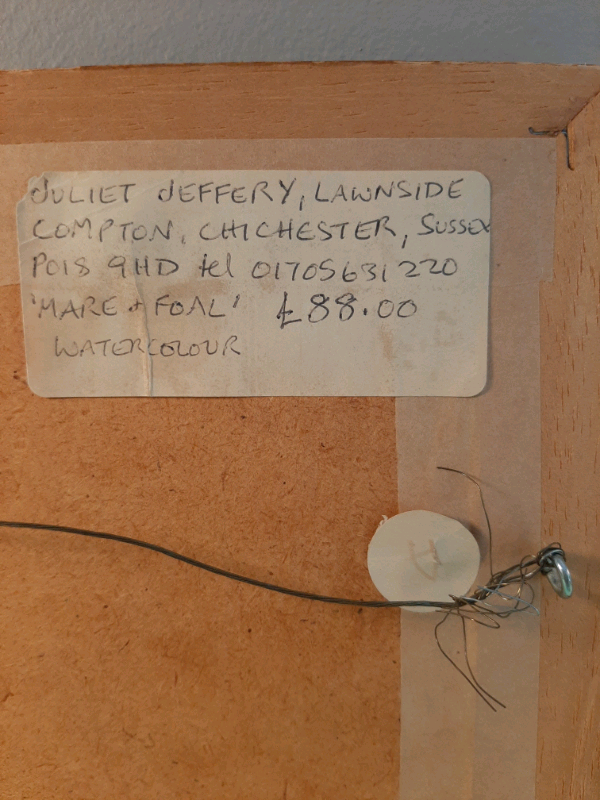 JULIET JEFFERY, LAWNSIDE
COMPTON, CHICHESTER, SUSSEX
PO18 9HD tel 01705631220
'MARE + FOAL' £88.00
WATERCOLOUR